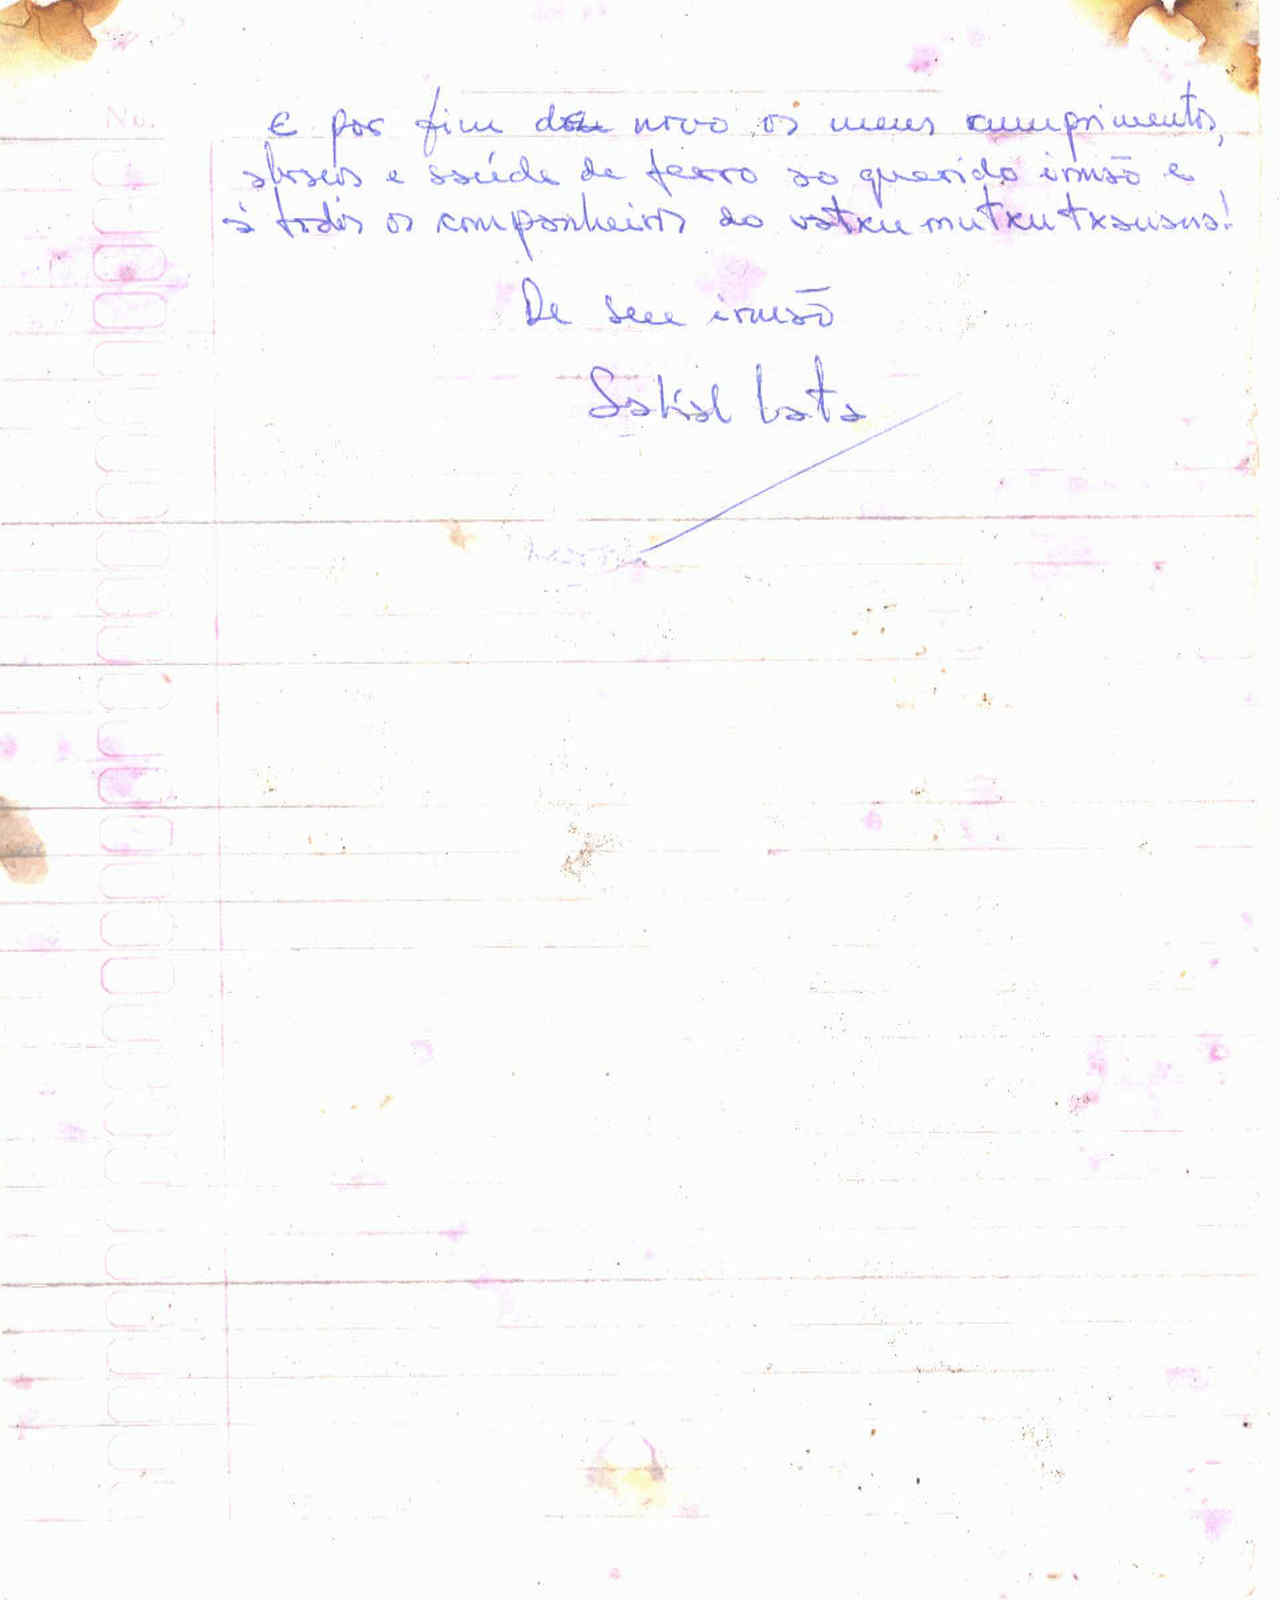 No.
E por fim de novo os meus cumprimentos,
abraços e saúde de ferro ao querido irmão e
à todos os companheiros do vatxu mutxutxauana!
De seu irmão
Sakial Lata